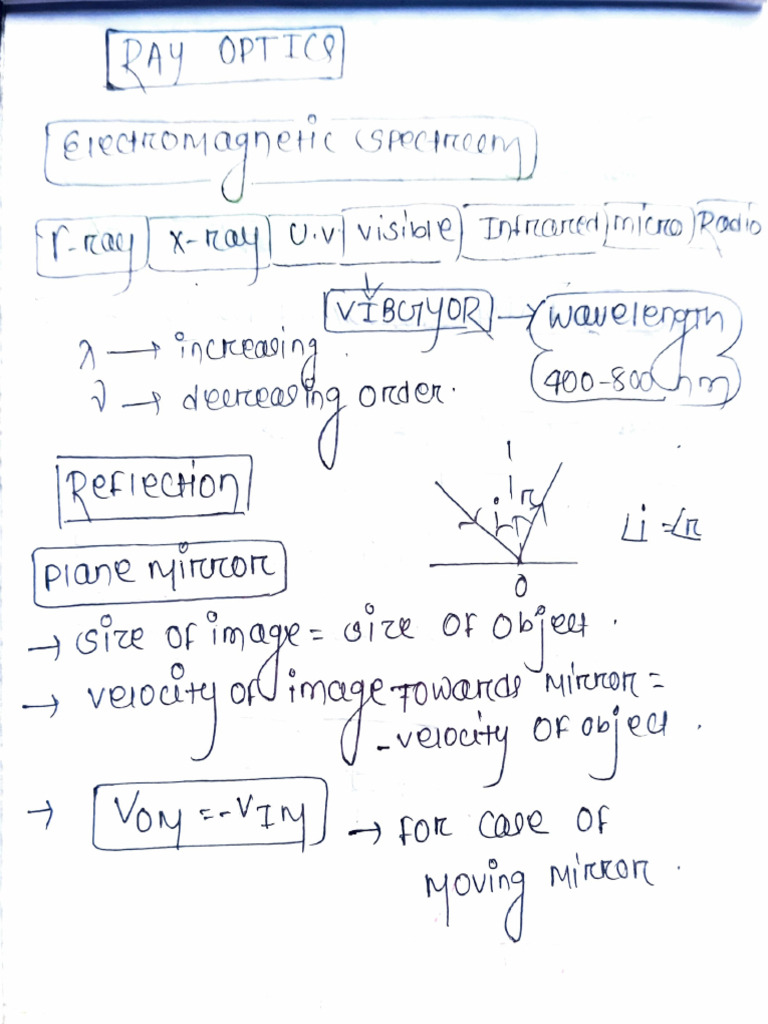 RAY OPTICS
Electromagnetic Spectreom
γ-ray x-ray U.V visible Infrared micro Radio
VIBGYOR → wavelength
λ → increasing.
400-800 nm
ν → decreasing order.
Reflection
i r
∠i = ∠r
Plane Mirror
O
→ size of image = size of object.
→ velocity of image towards mirror =
- velocity of object.
→ VOM = -VIM → for case of
moving mirror.